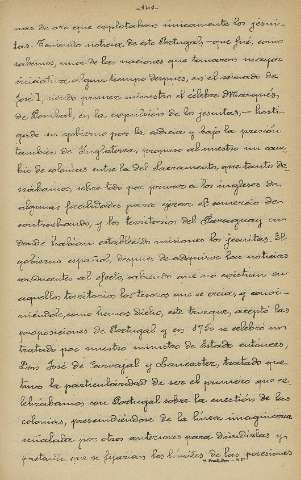 nas de oro que explotaban únicamente los jesuí-
tas. Teniendo noticia de esto Portugal, que fué, como
sabemos, una de las naciones que tomaron mayor
iniciativa algun tiempo despues, en el reinado de
José I, siendo primer ministro el célebre Marqués
de Pombal, en la expulsión de los jesuitas, hosti-
gado su gobierno por la y bajo la presión
tambien de Inglaterra, propuso al nuestro un cam-
bio de colonias entre la del Sacramento, que tanto de-
seábamos, sobre todo por privar a los ingleses de
algunas facilidades para ejercer el comercio de
contrabando, y los territorios del Paraguay en
donde habían establecido misiones los jesuitas. El
gobierno español, despues de adquirir las noticias
conducentes al efecto, sabiendo que no existian en
aquellos territorios los tesoros que se creia, y convi-
niéndole, como hemos dicho, este trueque, aceptó las
proposiciones de Portugal y en 1750 se celebró un
tratado por nuestro ministro de Estado entonces,
Don José de Carvajal y Lancaster, tratado que
tuvo la particularidad de ser el primero que ce-
lebrábamos con Portugal sobre la cuestión de las
colonias, prescindiéndose de la línea imaginaria
señalada por otros anteriores para dividirlas y
que se fijaran los límites de las posesiones